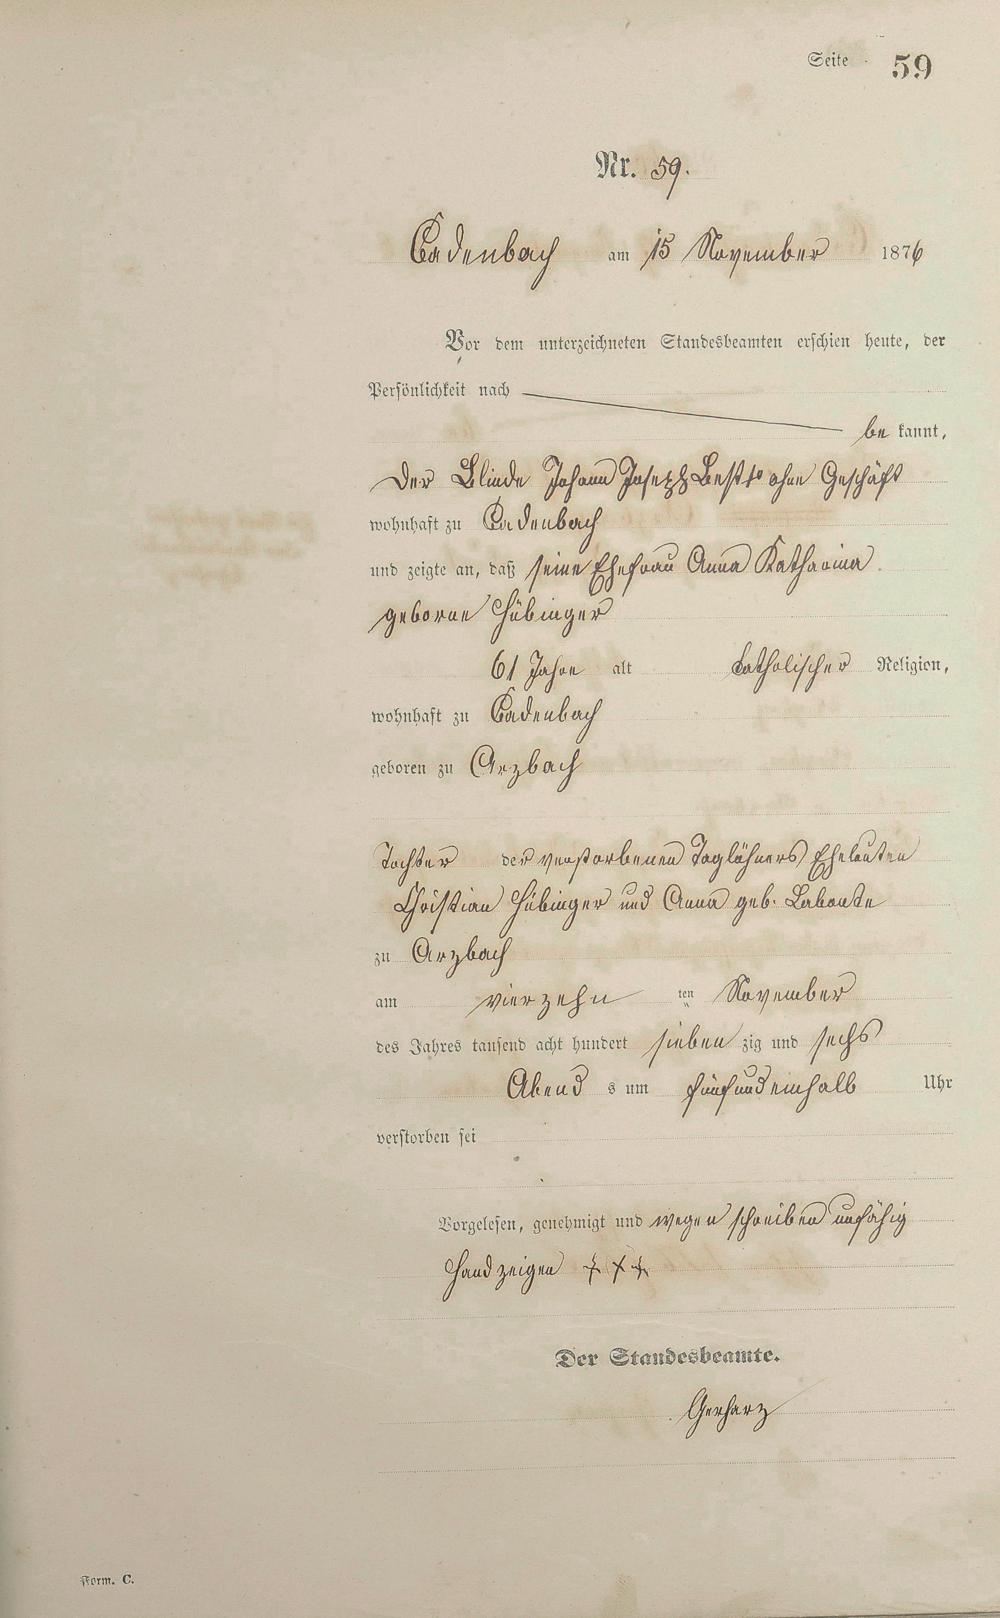 Seite 59
Nr. 59.
Cadenbach am 15 November 1876
Vor dem unterzeichneten Standesbeamten erschien heute, der
Persönlichkeit nach
be kannt,
Der Blinde Johann Joseph ohne Geschäft
wohnhaft zu Cadenbach
und zeigte an, daß seine Ehefrau Anna Katharina
geborne Hübinger
61 Jahre alt katholischer Religion,
wohnhaft zu Cadenbach
geboren zu Arzbach
Tochter der verstorbenen Taglöhners Eheleuten
Christian Hübinger und Anna geb. Labonte
zu Arzbach
am vierzehn ten November
des Jahres tausend acht hundert sieben zig und sechs
Abend s um fünfundeinhalb Uhr
verstorben sei
Vorgelesen, genehmigt und wegen schreiben unfähig
Handzeigen † † †
Der Standesbeamte.
Gerharz
Form. C.